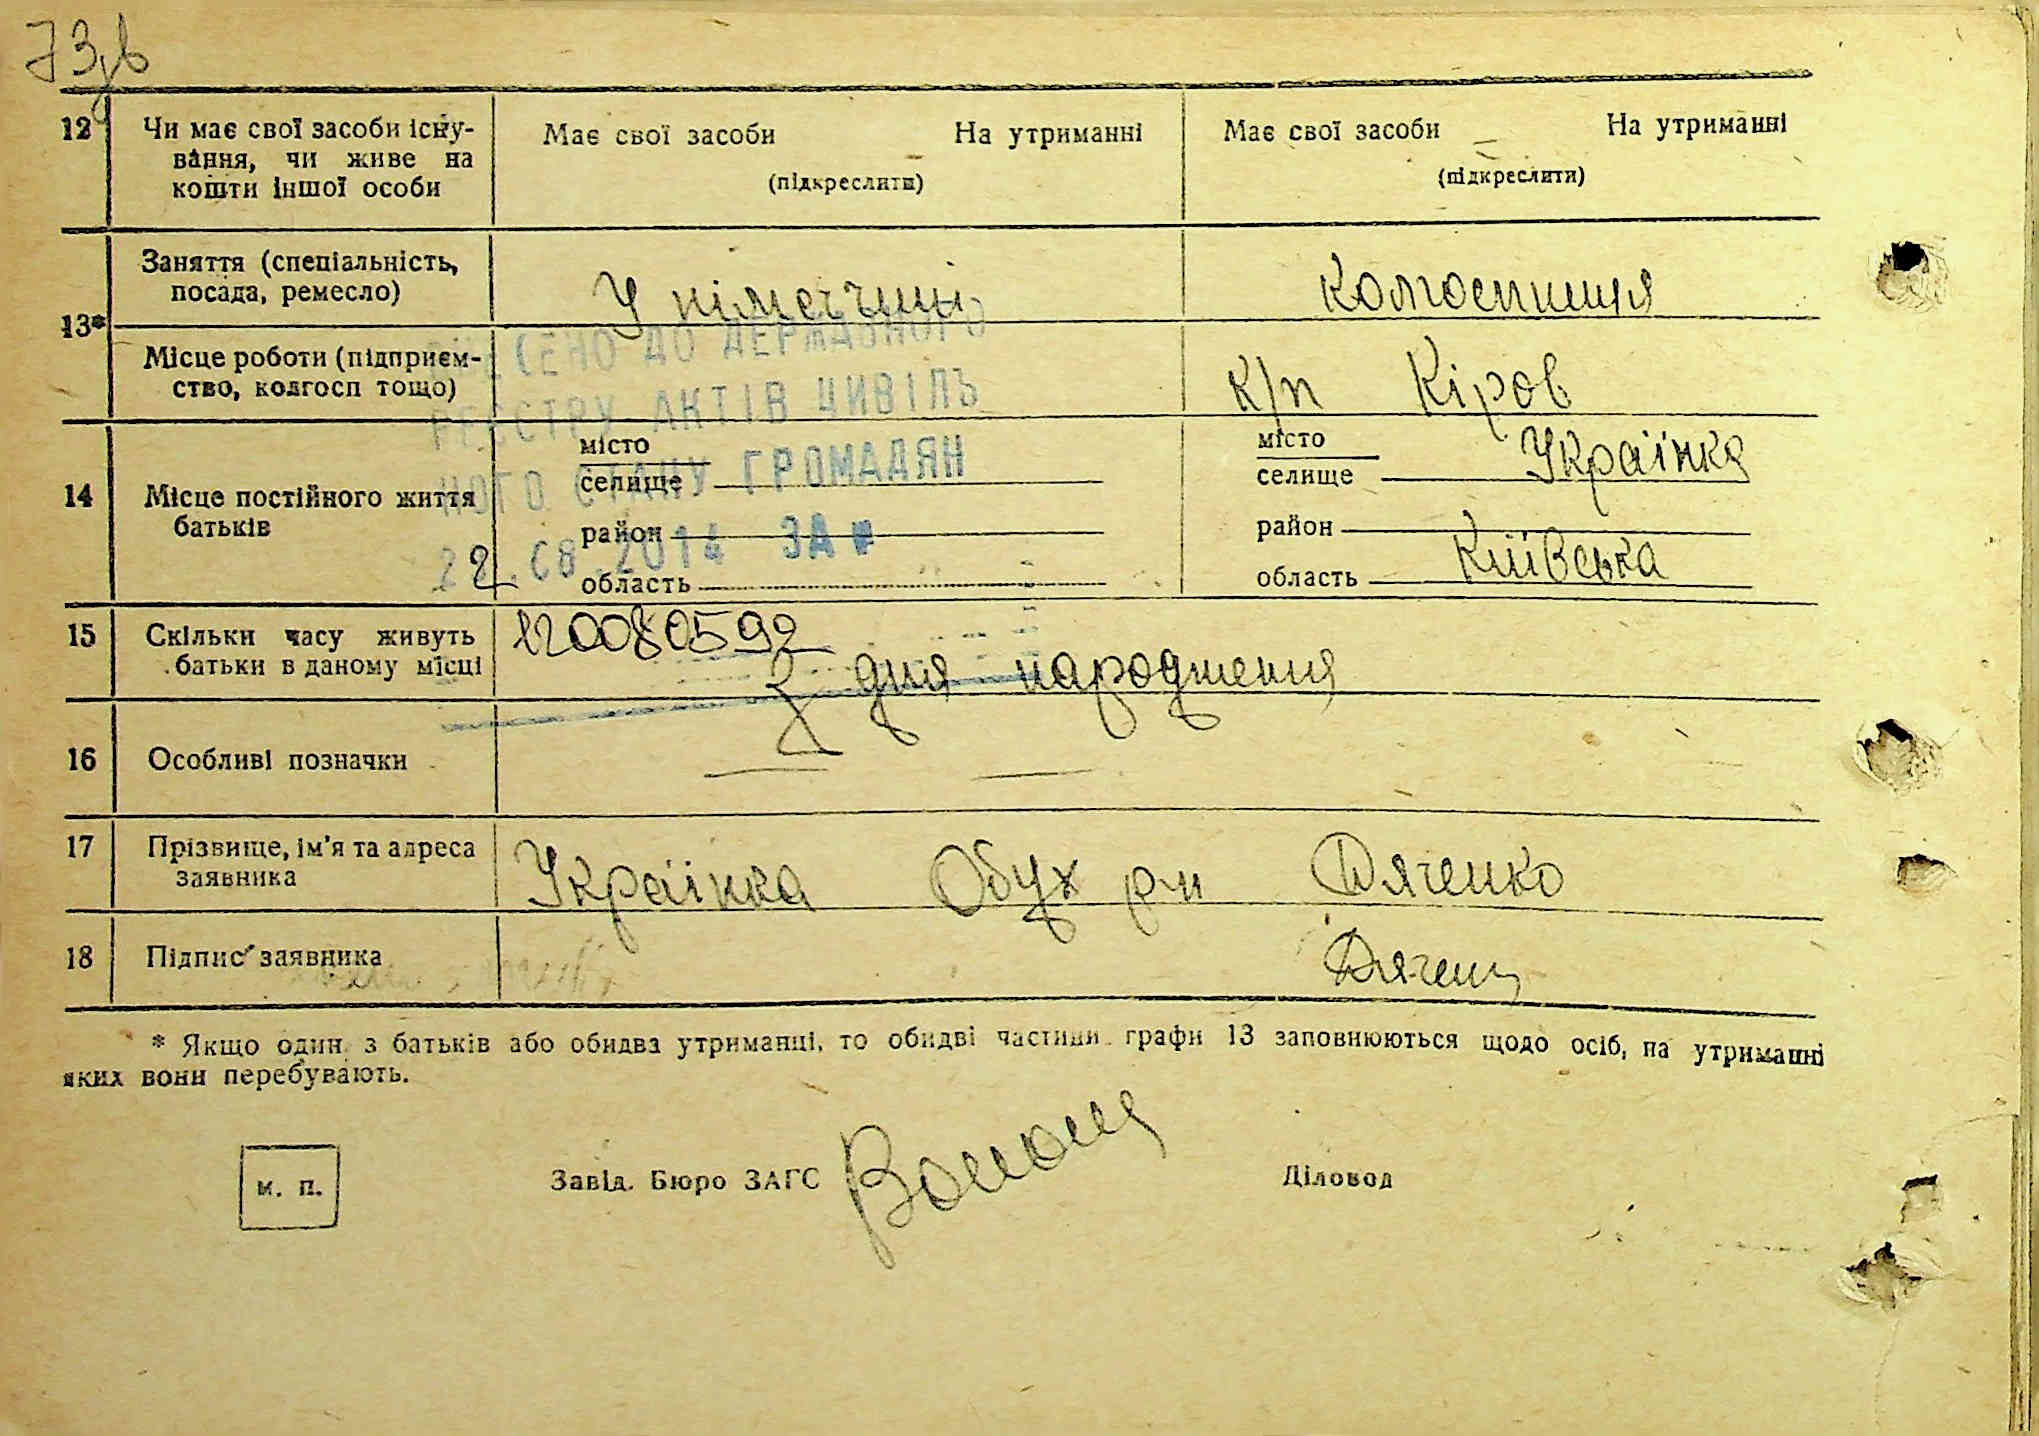 73 зв
12
Чи має свої засоби існу-
вання, чи живе на
кошти іншої особи
Має свої засоби На утриманні
(підкреслити)
Має свої засоби На утриманні
(підкреслити)
13*
Заняття (спеціальність,
посада, ремесло)
У німеччині
колгоспниця
Місце роботи (підприєм-
ство, колгосп тощо)
к/п Кіров
ВНЕСЕНО ДО ДЕРЖАВНОГО
РЕЄСТРУ АКТІВ ЦИВІЛЬ
НОГО СТАНУ ГРОМАДЯН
22.08.2014 ЗА №
1200805992
14
Місце постійного життя
батьків
місто
селище
район
область
місто
селище Українка
район
область Київська
15
Скільки часу живуть
батьки в даному місці
З дня народження
16
Особливі позначки
17
Прізвище, ім'я та адреса
заявника
Українка Обух р-н Дяченко
18
Підпис заявника
* Якщо один з батьків або обидва утриманці, то обидві частини графи 13 заповнюються щодо осіб, на утриманні
яких вони перебувають.
м. п.
Завід. Бюро ЗАГС
Діловод